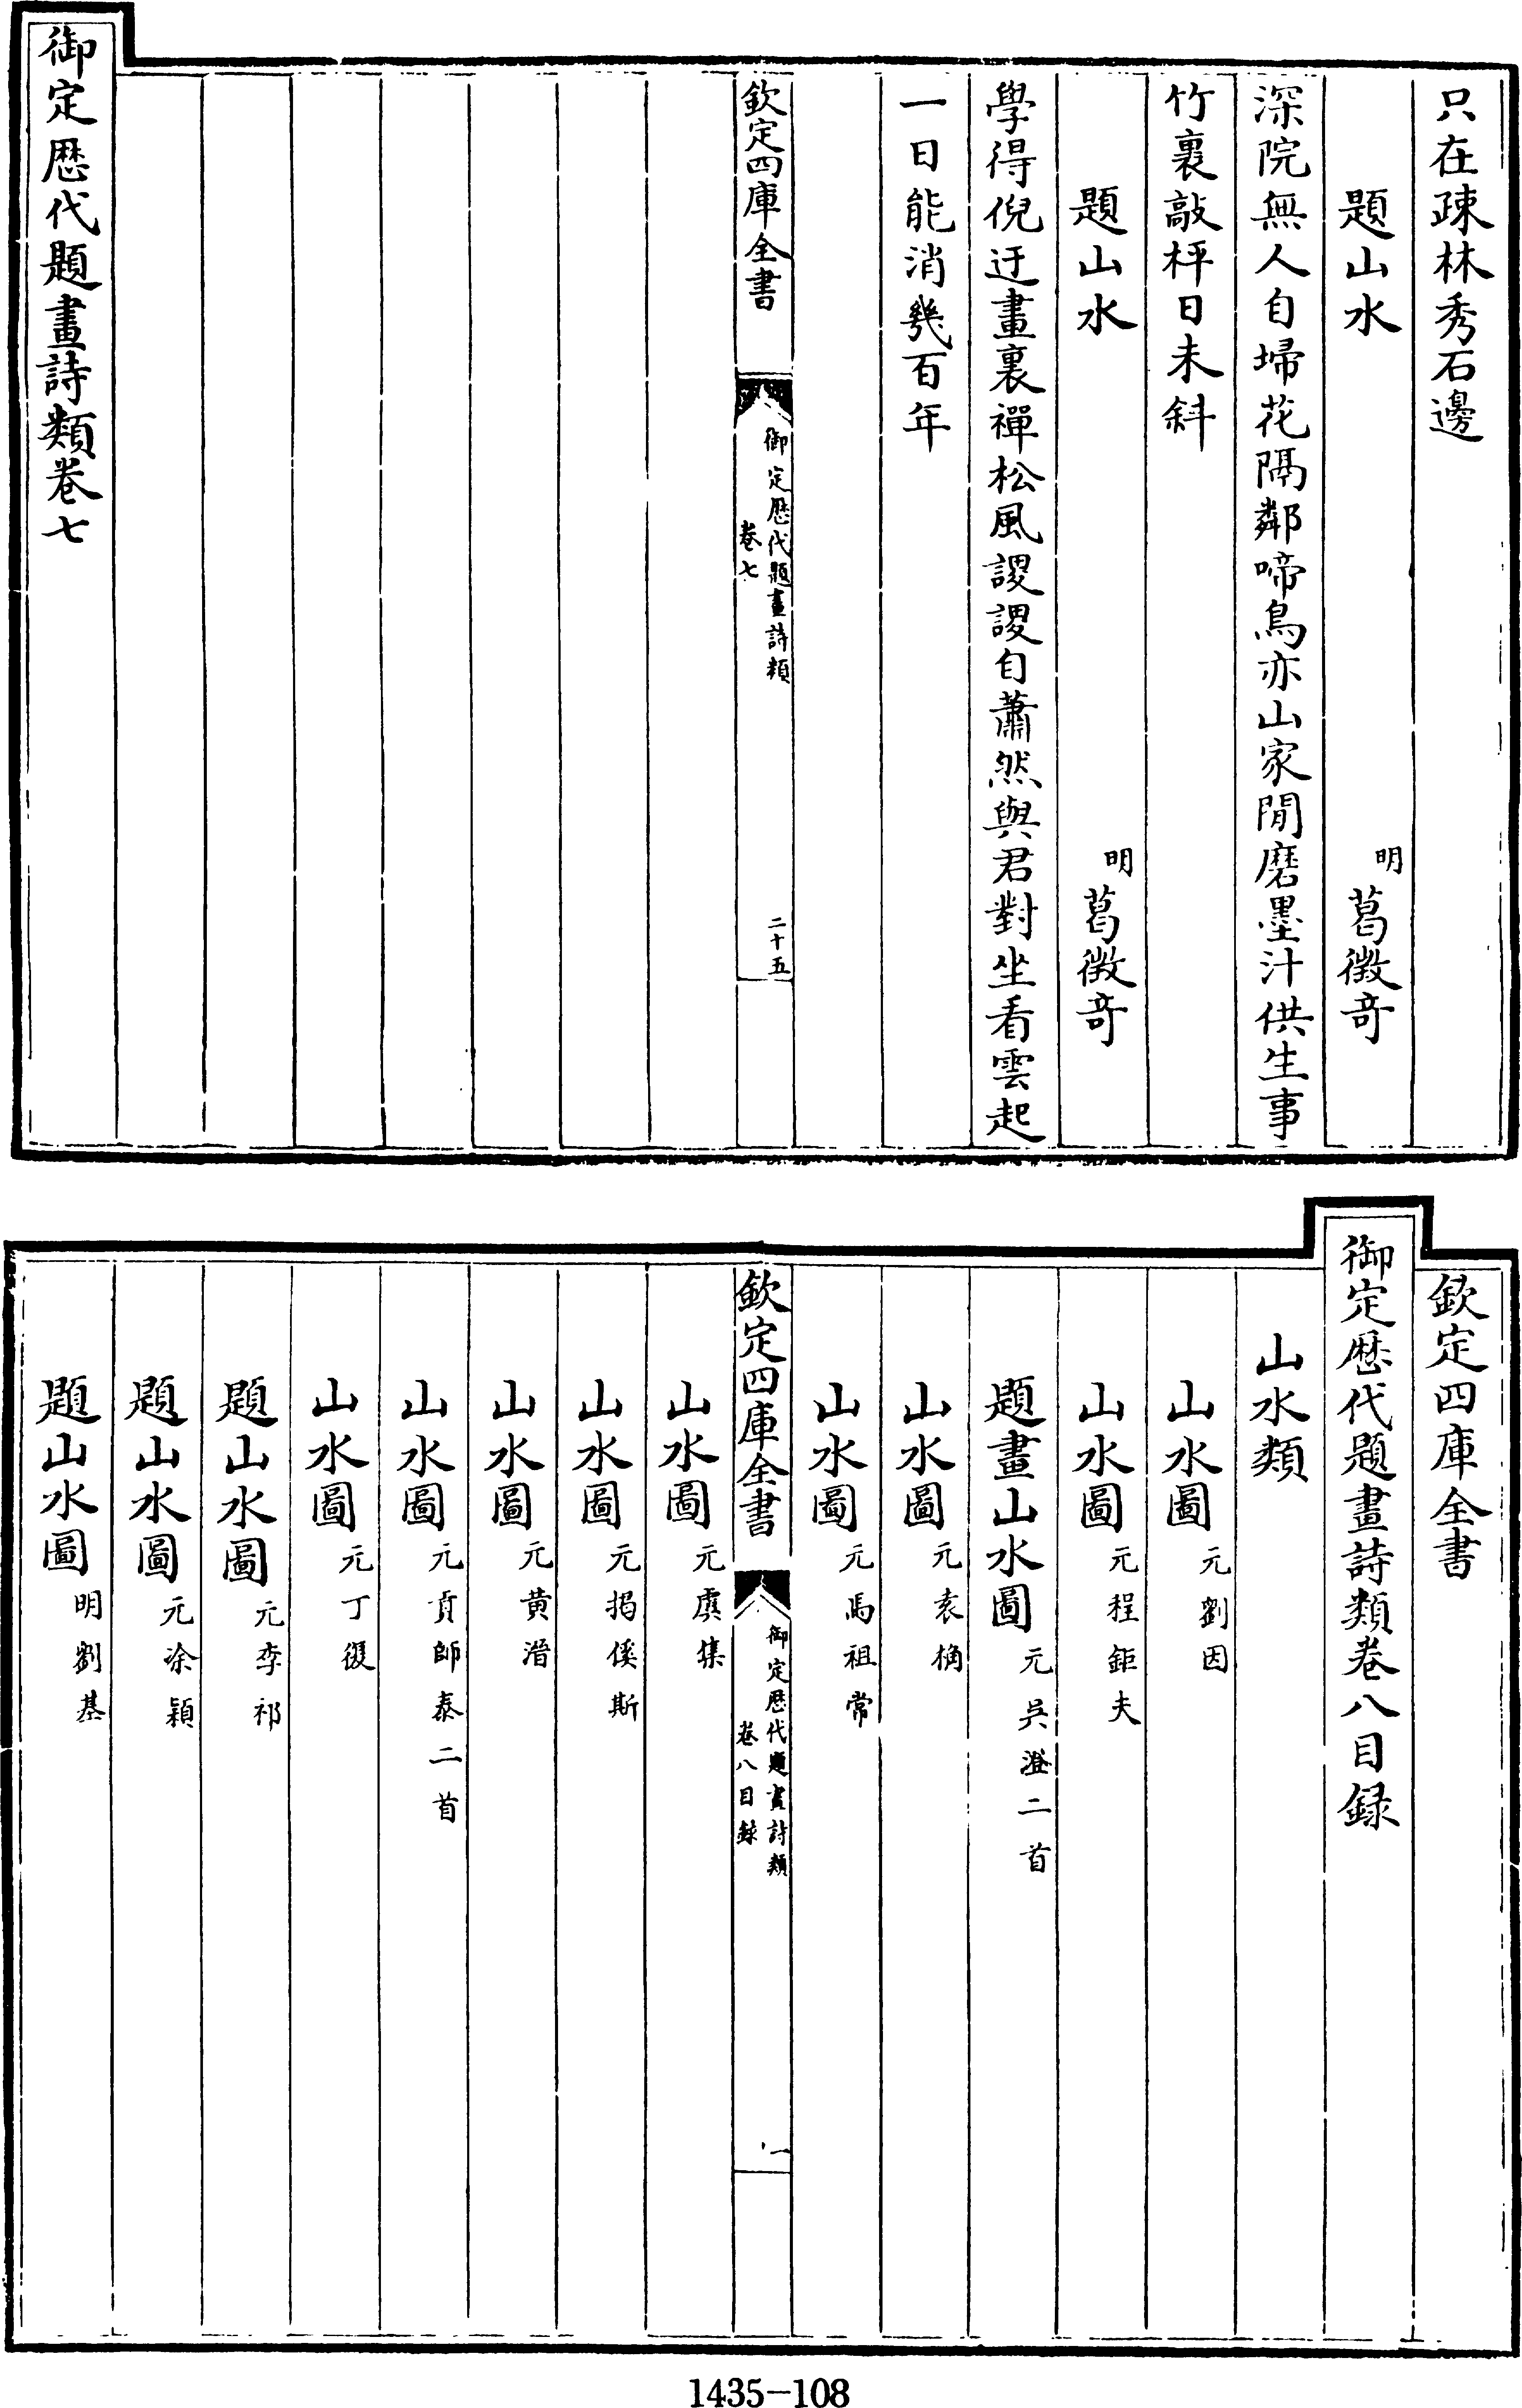 只在疎林秀石邊
題山水　明葛徵竒
深院無人自埽花隔鄰啼鳥亦山家閒磨墨汁供生事
竹裏敲枰日未斜
題山水　明葛徵竒
學得倪迂畫裏禪松風謖謖自蕭然與君對坐看雲起
一日能消幾百年
欽定四庫全書
御定歷代題畫詩類
卷七
二十五
御定歷代題畫詩類卷七
欽定四庫全書
御定歷代題畫詩類卷八目録
山水類
山水圖元劉因
山水圖元程鉅夫
題畫山水圖元吳澄二首
山水圖元袁桷
山水圖元馬祖常
欽定四庫全書
御定歷代題畫詩類
卷八目録
一
山水圖元虞集
山水圖元揭傒斯
山水圖元黄溍
山水圖元貢師泰二首
山水圖元丁復
題山水圖元李祁
題山水圖元涂穎
題山水圖明劉基
1435-108